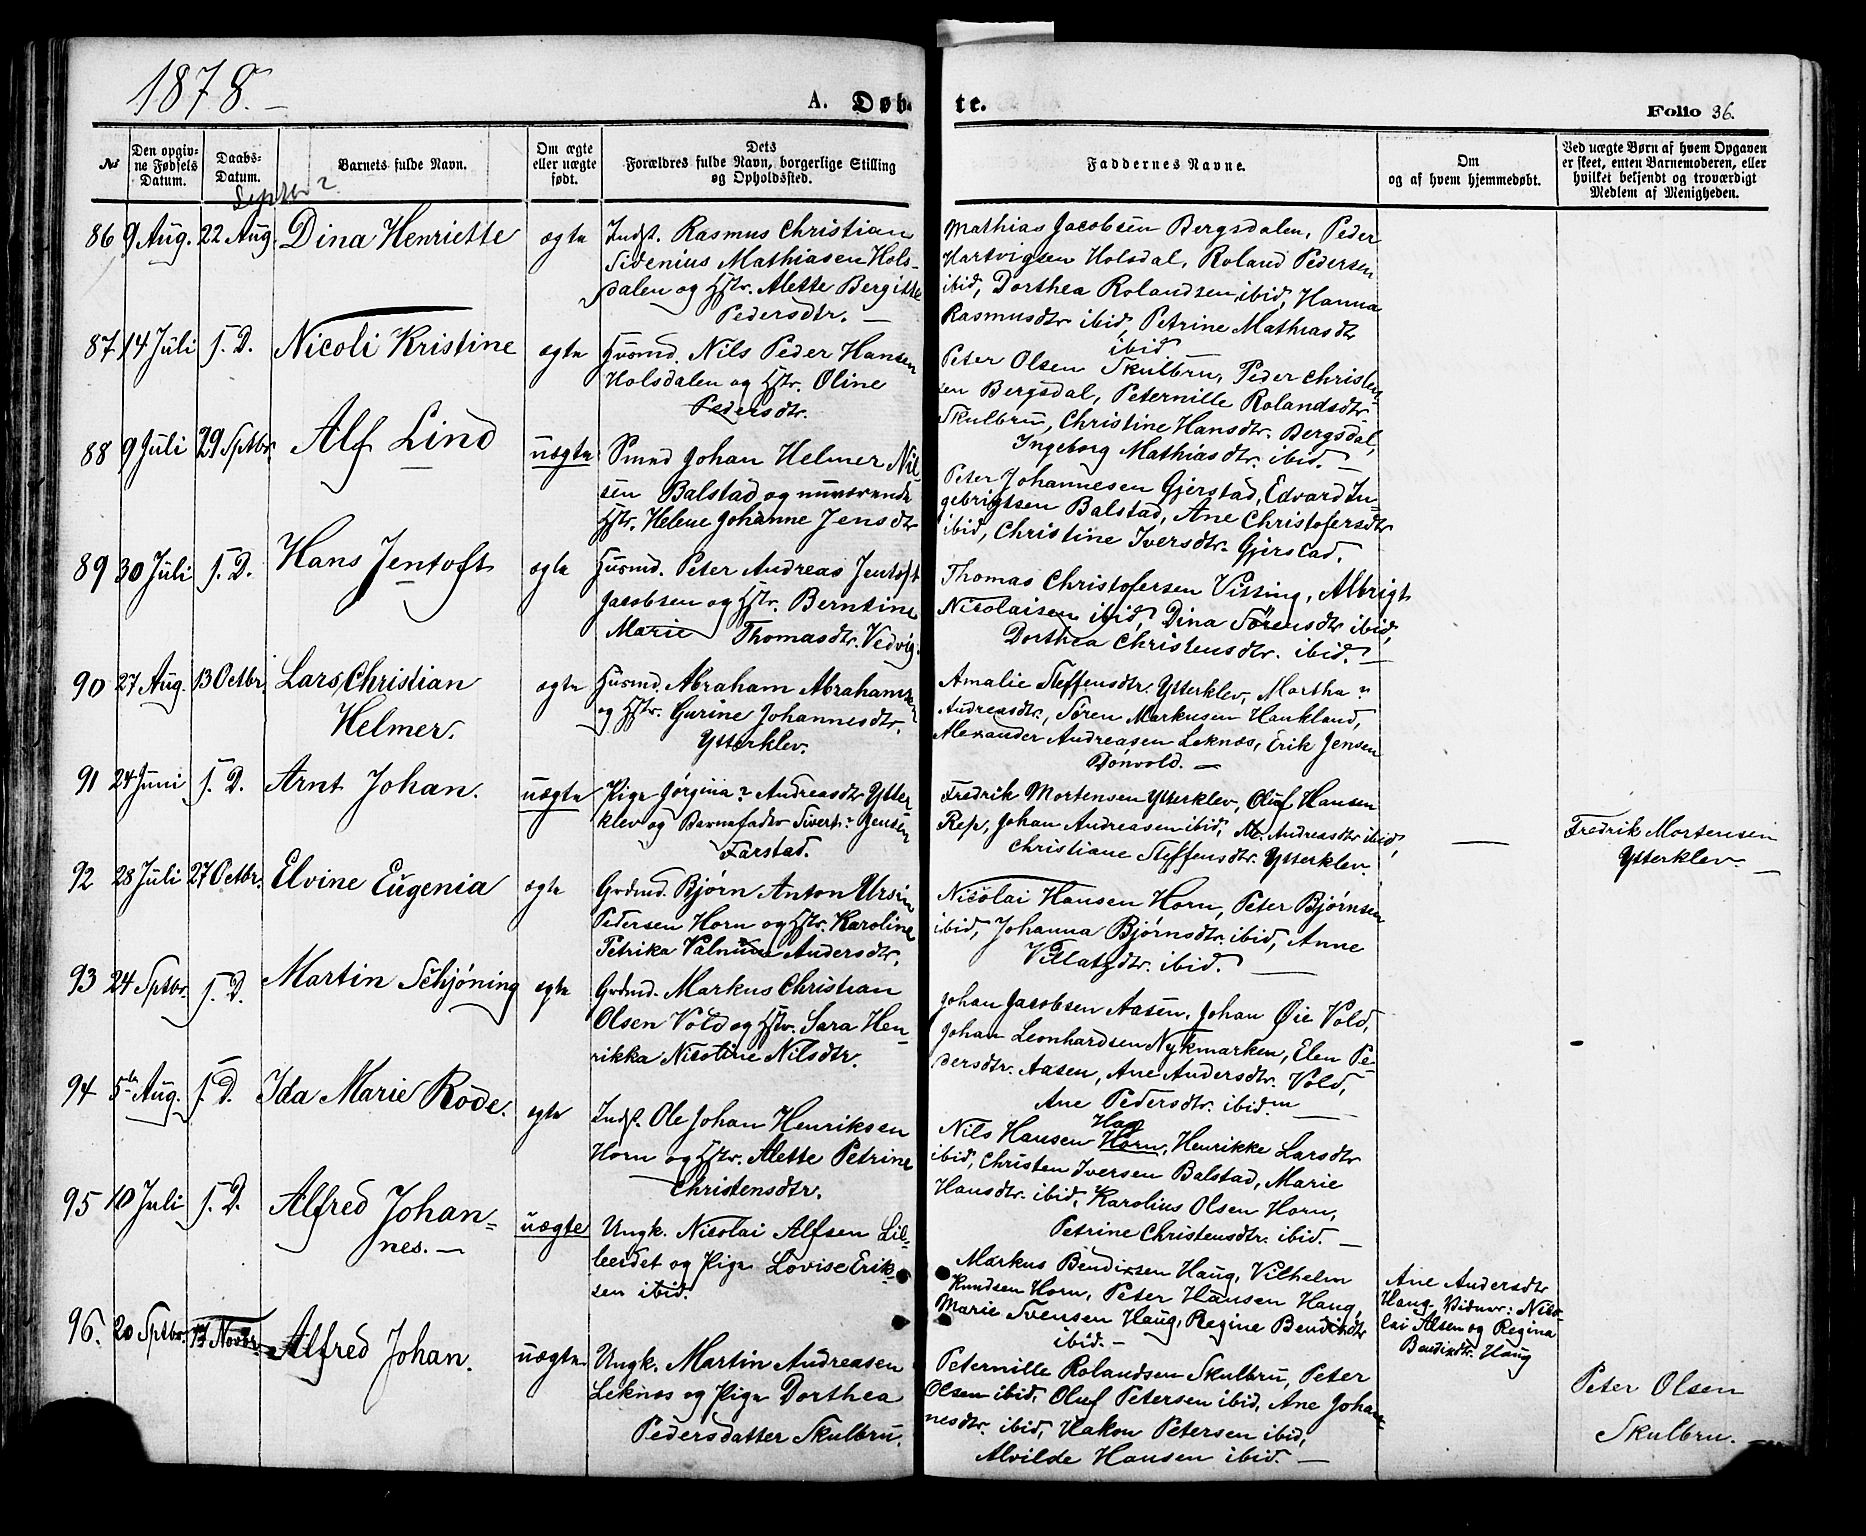 1878.
A. Døb
te.
Folio 36.
№
Den opgiv-
ne Fødsels
Datum.
Daabs-
Datum.
Barnets fulde Navn.
Om ægte
eller uægte
født.
Dets
Forældres fulde Navn, borgerlige Stilling
og Opholdssted.
Faddernes Navne.
Om
og af hvem hjemmedøbt.
Ved uægte Børn af hvem Opgaven
er skeet, enten Barnemoderen, eller
hvilket bekjendt og troværdigt
Medlem af Menigheden.
Septbr?
86 9 Aug. 22 Aug. Dina Henriette ægte
Indst. Rasmus Christian
Sivenius Mathiasen Hols-
dalen og Hstr. Alette Bergitte
Pedersdtr.
Mathias Jacobsen Bergsdalen, Peder
Hartvigsen Holsdal, Roland Pedersen
ibid, Dorthea Rolandsen ibid, Hanna
Rasmusdtr ibid, Petrine Mathiasdtr
ibid
87 14 Juli s. D. Nicoli Kristine ægte
Husmd. Nils Peder Hansen
Holsdalen og Hstr. Oline
Pedersdtr.
Peter Olsen Skulbru, Peder Christen-
sen Bergsdal, Peternille Rolandsdtr
Skulbru, Christine Hansdtr. Bergsdal,
Ingeborg Mathiasdtr. ibid.
88 9 Juli 29 Sptbr. Alf Lind uægte
Smed Johan Helmer Nil-
sen Balstad og nuværende
Hstr. Helene Johanne Jensdtr
Peter Johannesen Gjerstad, Edvard In-
gebrigtsen Balstad, Ane Christofersdtr
ibid, Christine Iversdtr. Gjerstad.
89 30 Juli s. D. Hans Jentoft ægte
Husmd. Peter Andreas Jentoft
Jacobsen og Hstr. Berntine
Marie Thomasdtr. Vedvig.
Thomas Christofersen Vitting, Albrigt
Nicolaisen ibid, Dina Sørensdtr ibid,
Dorthea Christensdtr. ibid.
90 27 Aug. 13 Octbr. Lars Christian
Helmer. ægte
Husmd. Abraham Abrahamsen
og Hstr. Gurine Johannesdtr.
Ytterklev.
Amalie Steffensdtr. Ytterklev, Martha ?
Andreasdtr., Søren Markusen Haukland,
Alexander Andreasen Leknes, Erik Jensen
Dønvold.
91 24 Juni s. D. Arnt Johan. uægte
Pige Jørgina ? Andreasdtr Ytter
klev og Barnefader Sivert ? Jensen
Farstad.
Fredrik Mortensen Ytterklev, Oluf Hansen
Rep, Johan Andreasen ibid, M. Andreasdtr ibid,
Christiane Steffensdtr. Ytterklev.
Fredrik Mortensen
Ytterklev.
92 28 Juli 27 Octbr. Elvine Eugenia ægte
Grdmd. Bjørn Anton Ursin
Pedersen Horn og Hstr. Karoline
Petrika Valnum Andersdtr.
Nicolai Hansen Horn, Peter Bjørnsen
ibid, Johanna Bjørnsdtr. ibid, Anne
Villatzdtr. ibid.
93 24 Sptbr. s. D. Martin Schjöning ægte
Grdmd. Markus Christian
Olsen Vold og Hstr. Sara Hen-
rikka Nicoline Nilsdtr.
Johan Jacobsen Aasen, Johan Øie Vold,
Johan Leonhardsen Nykmarken, Elen Pe-
dersdtr. Aasen, Ane Andersdtr. Vold,
Ane Pedersdtr. ibidm
94 5te Aug. s. D. Ida Marie Rode. ægte
Indst. Ole Johan Henriksen
Horn og Hstr. Alette Petrine
Christensdtr.
Hag
Nils Hansen Horn, Henrikke Larsdtr
ibid, Christen Iversen Balstad, Marie
Hansdtr. ibid, Karolius Olsen Horn,
Petrine Christensdtr. ibid.
95 10 Juli s. D. Alfred Johan-
nes. uægte
Ungk. Nicolai Alfsen Lil-
leeidet og Pige Lovise Erik-
sen ibid.
Markus Bendixsen Haug, Vilhelm
Knudsen Horn, Peter Hansen Haug,
Marie Svensen Haug, Regine Bendixdtr
ibid.
Ane Andersdtr
Haug. Vidner: Nico-
lai Alsen og Regina
Bendixdtr. Haug
96. 20 Sptbr. 13 Novbr. Alfred Johan. uægte
Ungk. Martin Andreasen
Leknes og Pige Dorthea
Pedersdatter Skulbru.
Peternille Rolandsen Skulbru, Peter
Olsen ibid, Oluf Petersen ibid, Ane Johan-
nesdtr. ibid, Hakon Petersen ibid,
Alvilde Hansen ibid.
Peter Olsen
Skulbru.